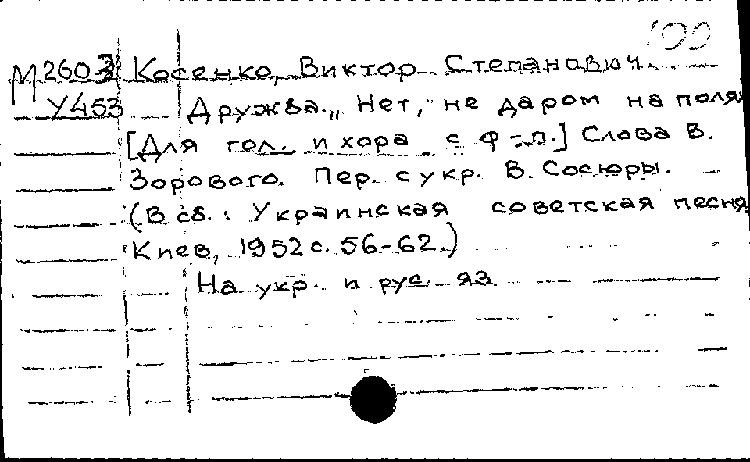 100
М2603 Косенко, Виктор Степанович.
У453 Дружба. „Нет, не даром на полях
[Для гол. и хора с ф-п.] Слова В.
Зорового. Пер. с укр. В. Сосюры.
(В сб.: Украинская советская песня
Киев, 1952 с. 56-62.)
На укр. и рус. яз.